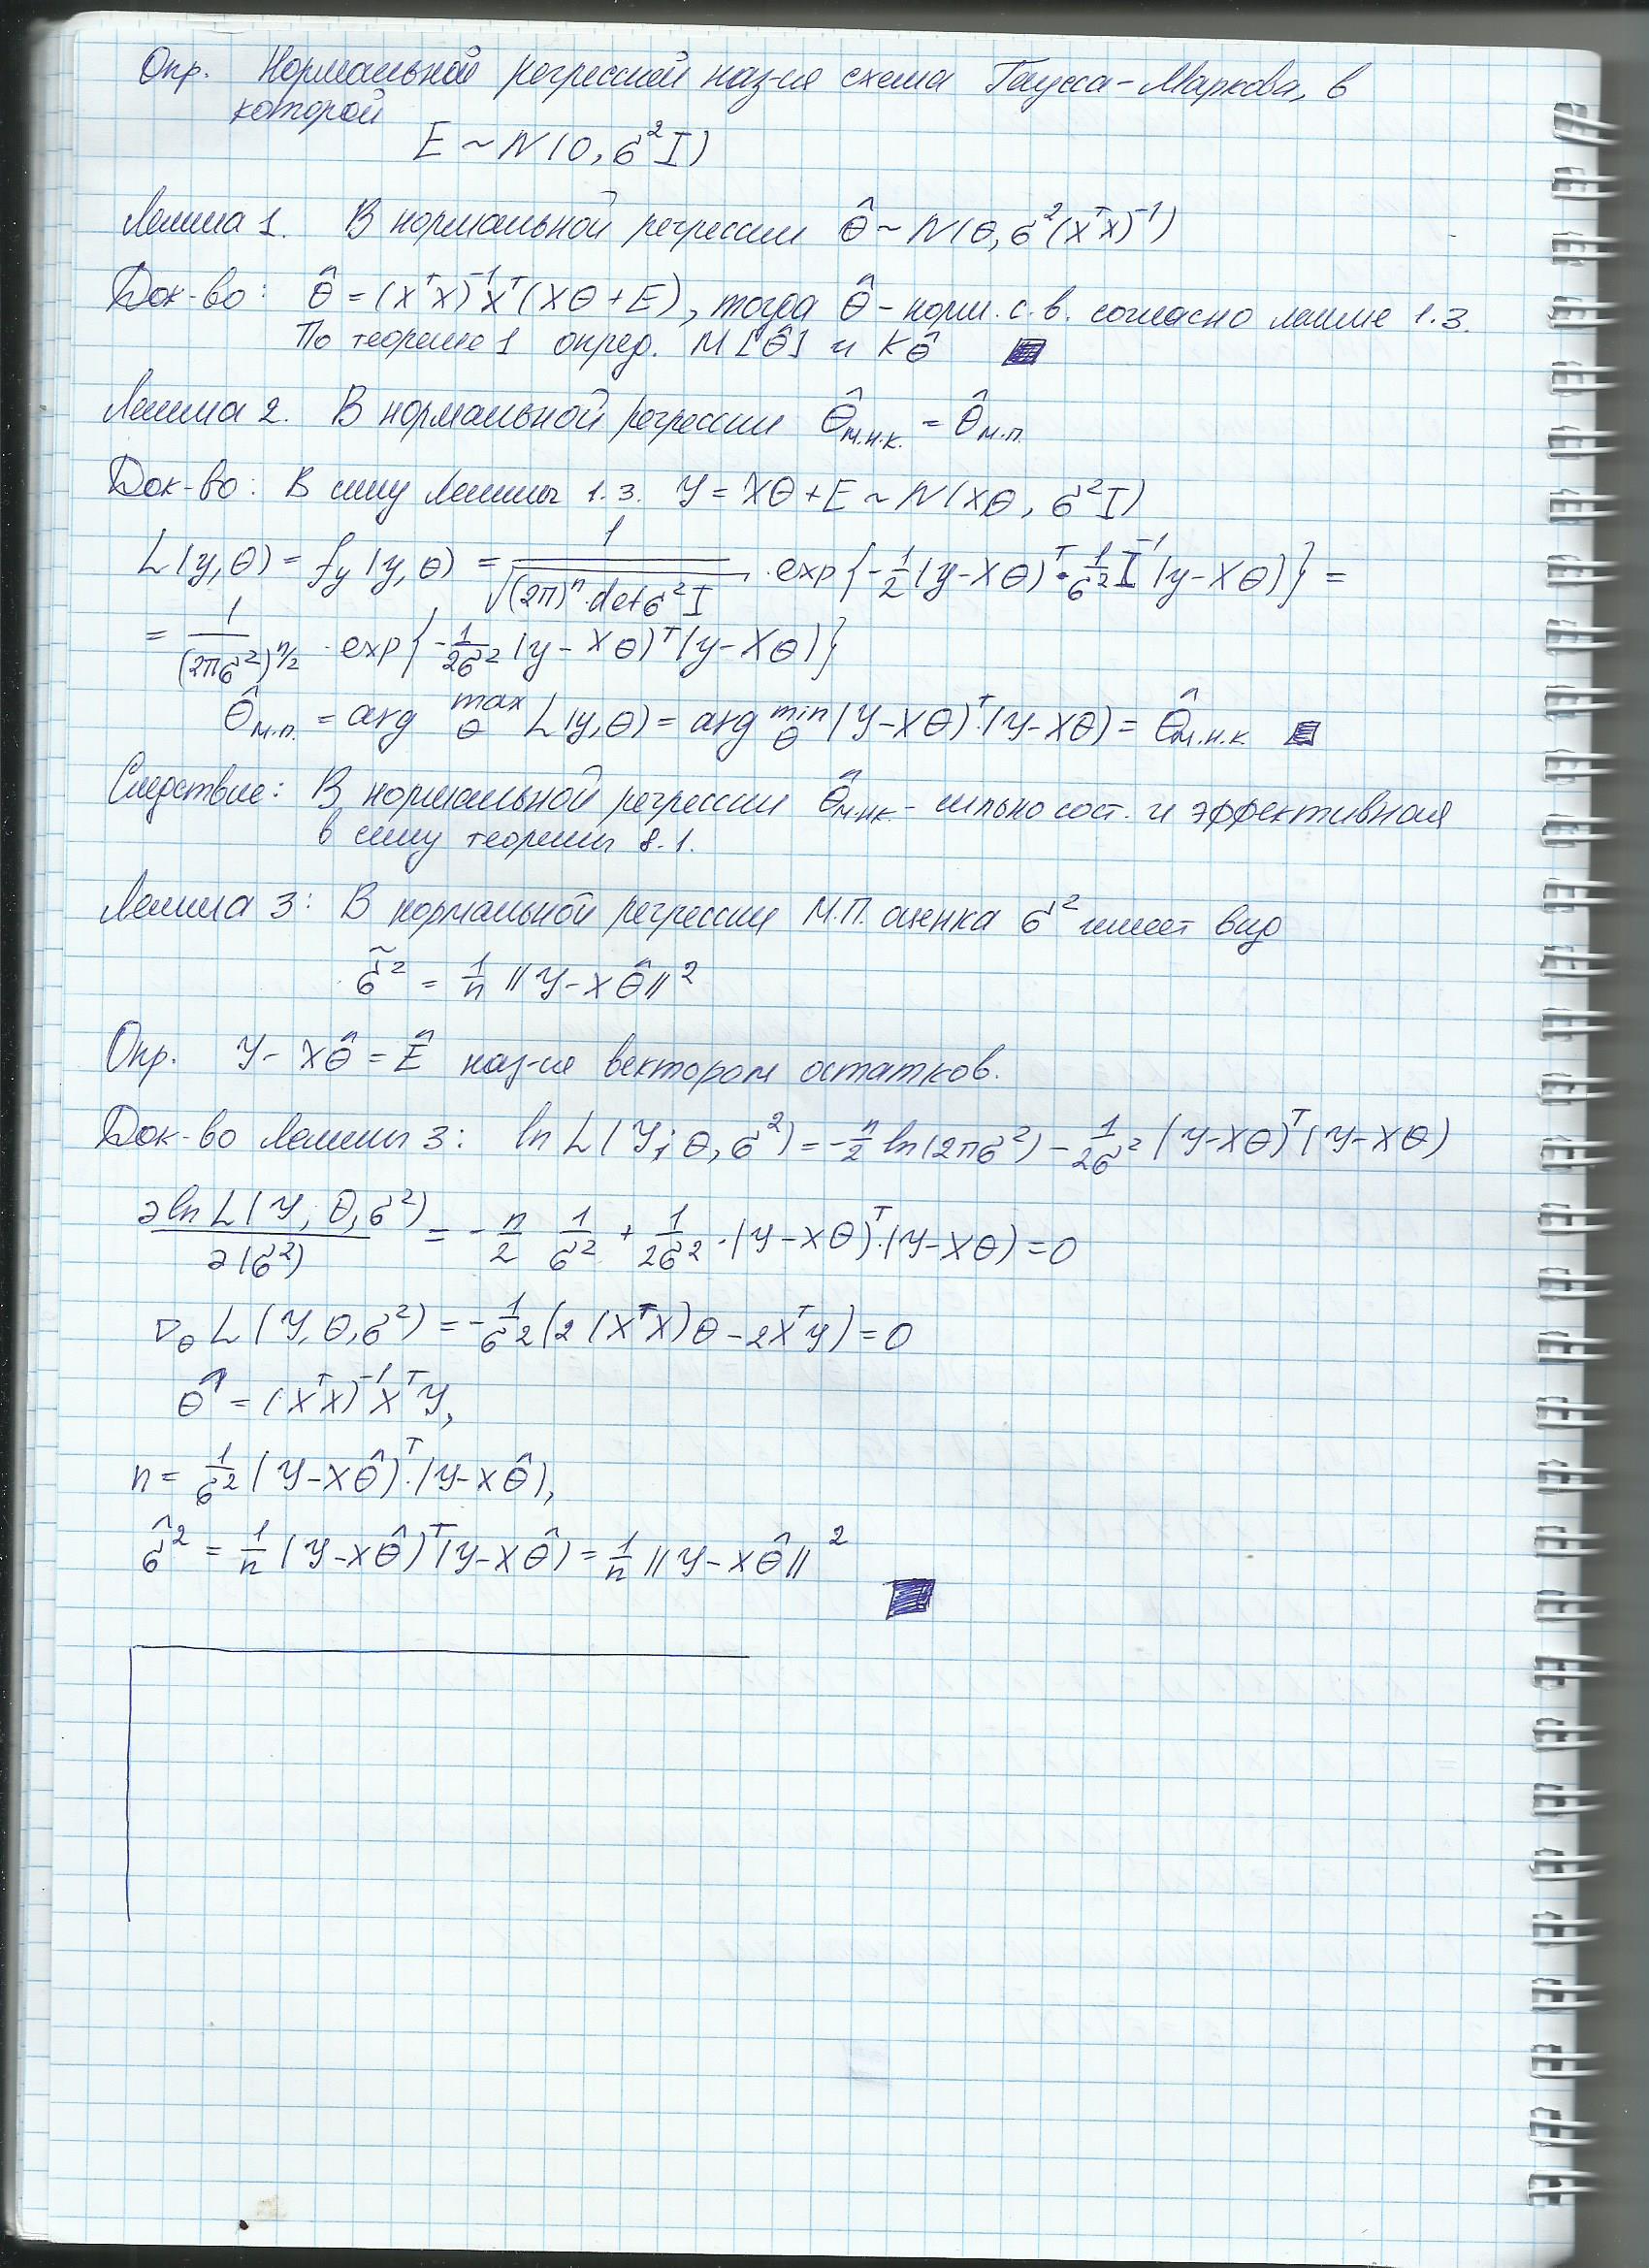 Опр. Нормальной регрессией наз-ся схема Гаусса-Маркова, в
которой
E ~ N(0, σ²I)
Лемма 1. В нормальной регрессии θ̂ ~ N(θ, σ²(XᵀX)⁻¹)
Док-во: θ̂ = (XᵀX)⁻¹Xᵀ(Xθ + E), тогда θ̂ - норм. с.в. согласно лемме 1.3.
По теореме 1 опред. M[θ̂] и Kθ̂
Лемма 2. В нормальной регрессии θ̂м.н.к. = θ̂м.п.
Док-во: В силу Леммы 1.3. Y = Xθ + E ~ N(Xθ, σ²I)
L(y, θ) = fy(y, θ) = 1/√((2π)ⁿ · det σ²I) · exp{-1/2 (y - Xθ)ᵀ · 1/σ² I⁻¹ (y - Xθ)} =
= 1/(2πσ²)^(n/2) · exp{-1/2σ² (y - Xθ)ᵀ(y - Xθ)}
θ̂м.п. = arg max θ L(y, θ) = arg min θ (Y - Xθ)ᵀ·(Y - Xθ) = θ̂м.н.к.
Следствие: В нормальной регрессии θ̂м.н.к. - сильно сост. и эффективная
в силу теоремы 8.1.
Лемма 3: В нормальной регрессии М.П. оценка σ² имеет вид
σ̃² = 1/n ||Y - Xθ̂||²
Опр. Y - Xθ̂ = Ê наз-ся вектором остатков.
Док-во Леммы 3: ln L(Y; θ, σ²) = -n/2 ln(2πσ²) - 1/2σ² (Y - Xθ)ᵀ(Y - Xθ)
∂ln L(Y, θ, σ²)/∂(σ²) = -n/2 1/σ² + 1/2σ² · (Y - Xθ)ᵀ·(Y - Xθ) = 0
∇θ L(Y, θ, σ²) = -1/σ² (2(XᵀX)θ - 2XᵀY) = 0
θ̂ = (XᵀX)⁻¹XᵀY,
n = 1/σ² (Y - Xθ̂)ᵀ·(Y - Xθ̂),
σ̂² = 1/n (Y - Xθ̂)ᵀ(Y - Xθ̂) = 1/n ||Y - Xθ̂||²